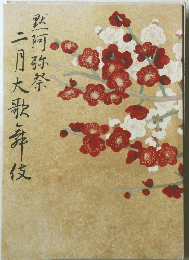 黙阿弥祭
二月大歌舞伎